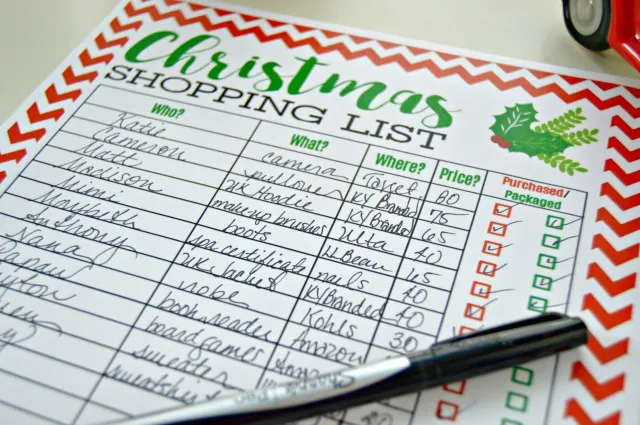 Christmas
SHOPPING LIST
Who? What? Where? Price? Purchased/Packaged
Katie camera Target 80
Cameron pullover KY Branded 75
Matt UK Hoodie KY Branded 65
Madison makeup brushes Ulta 40
Mimi boots LL Bean
Maribeth spa certificate nails 40
Anthony UK jacket KY Branded
Nana robe Kohls 30
Papaw book reader Amazon
board games Amazon
sweater
sweatshirt